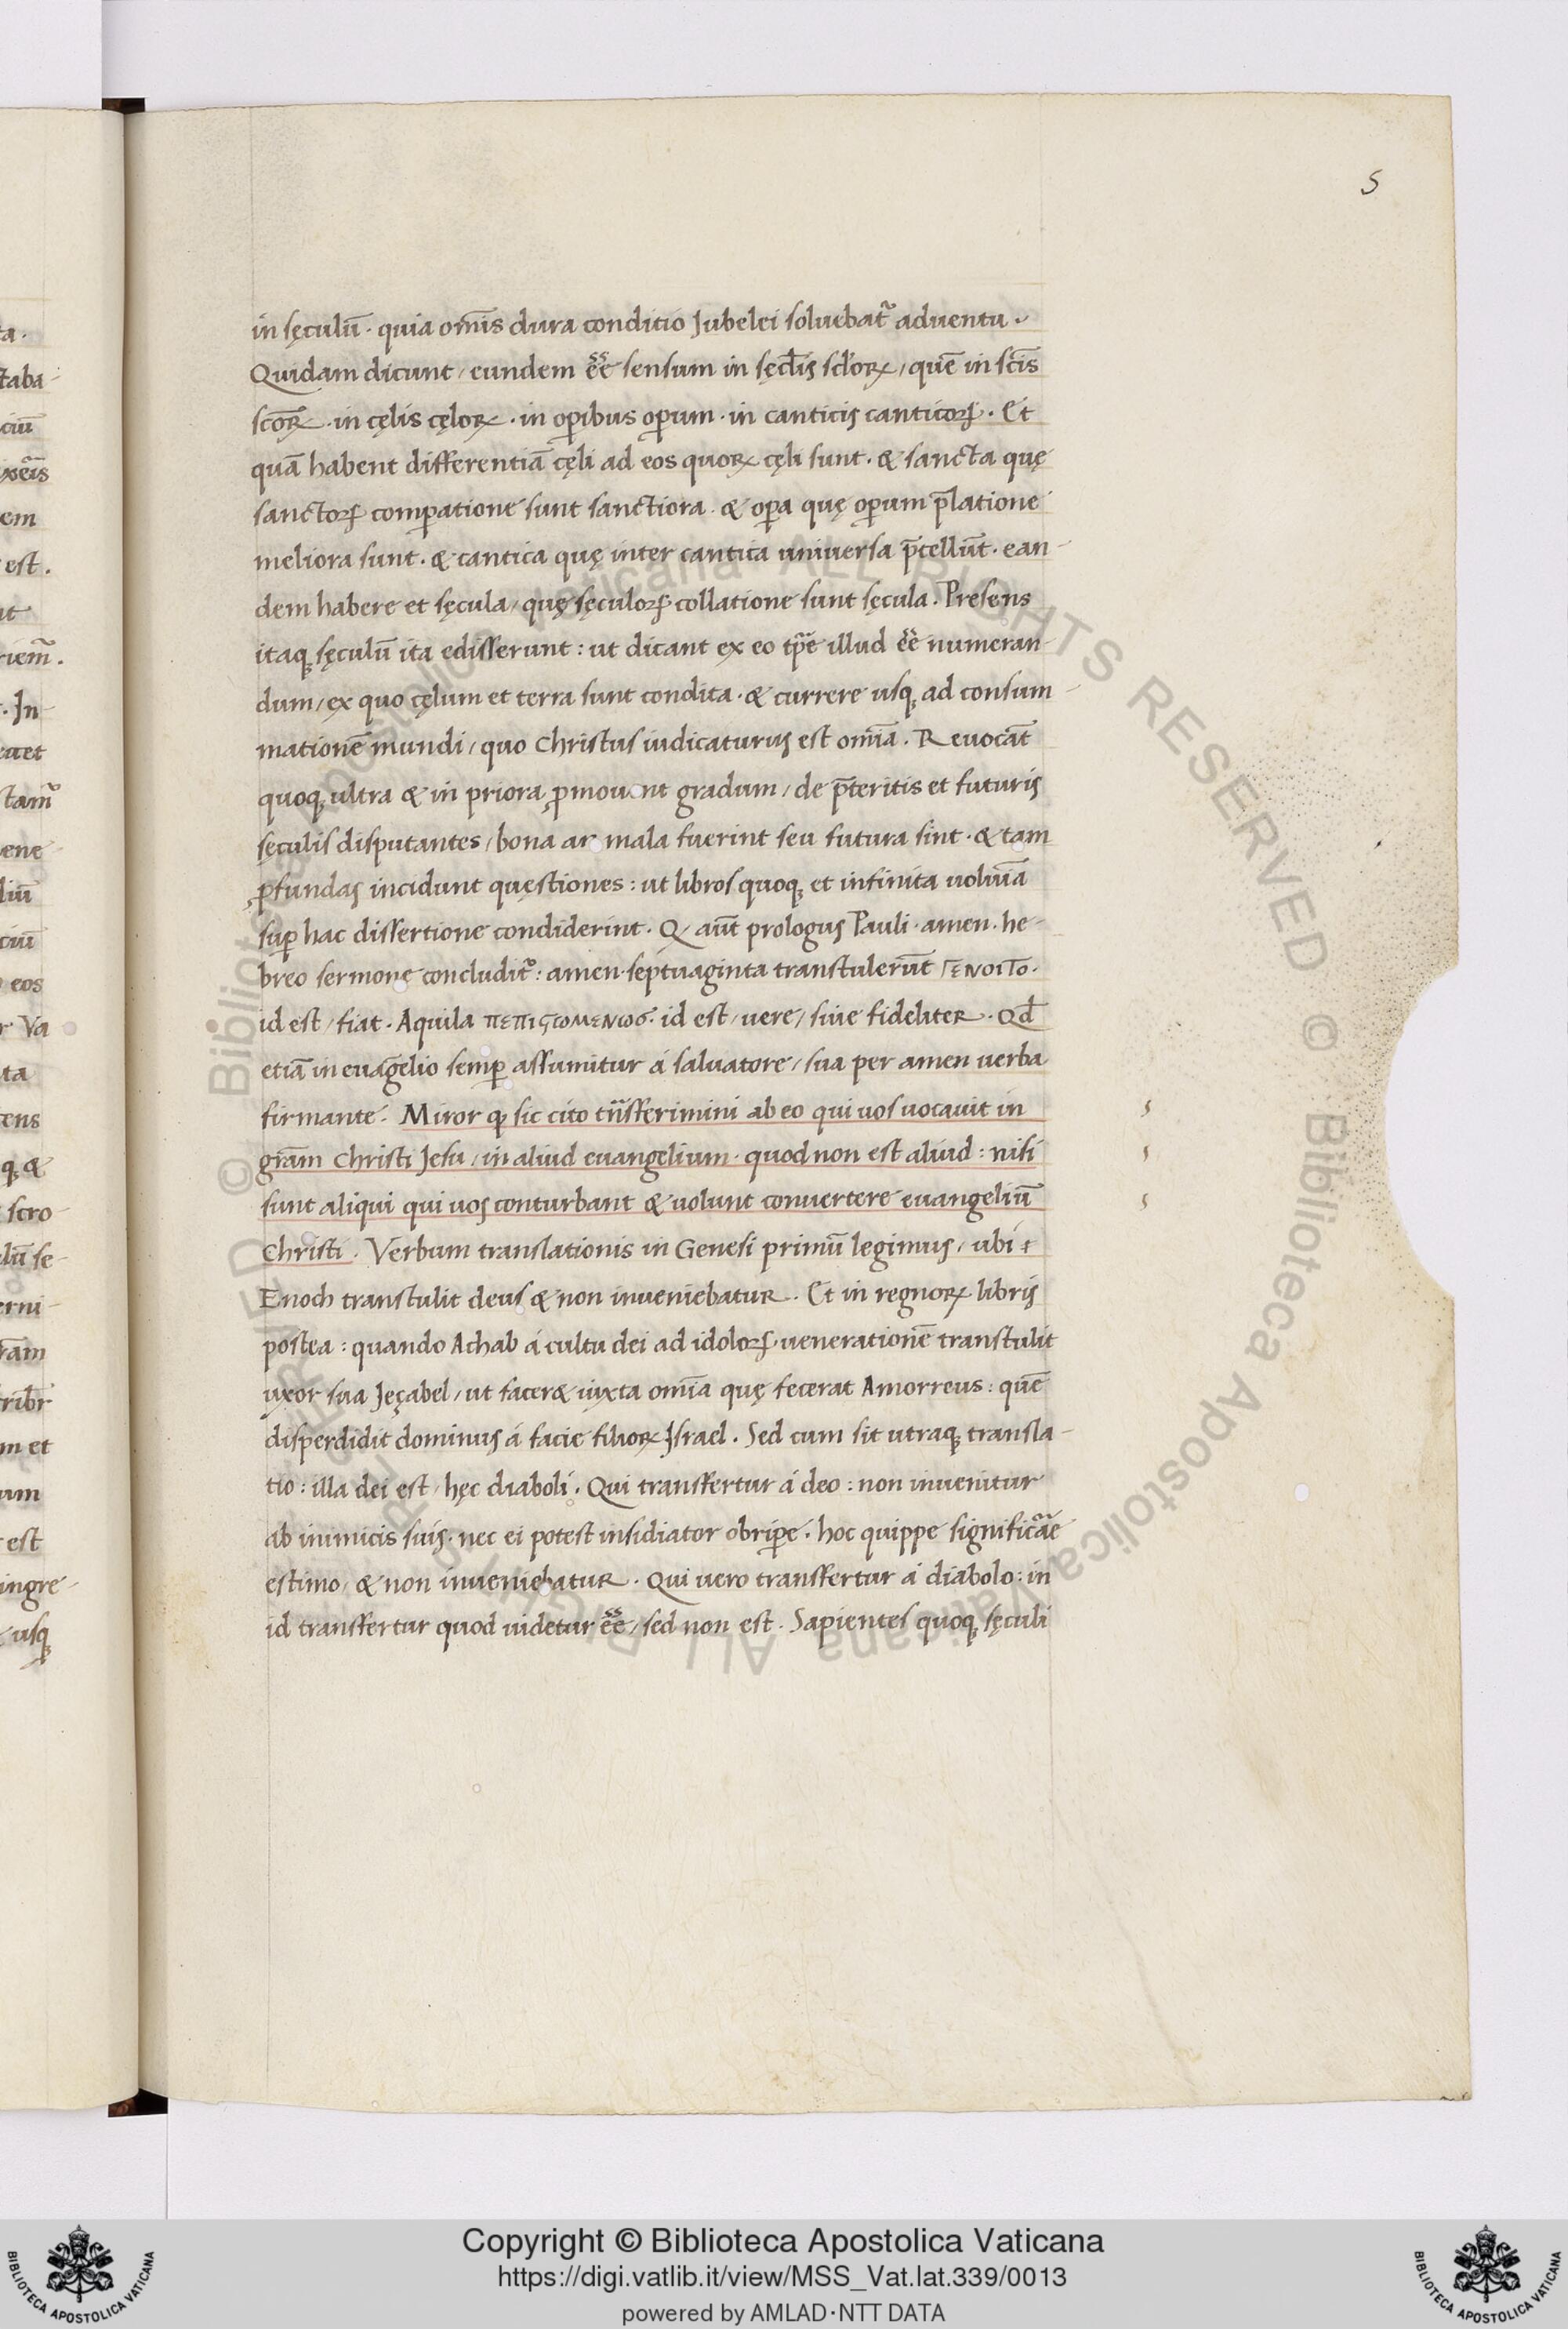 5
in sęculū · quia om̄is dura conditio Jubelei soluebat᷑ aduentu ·
Quidam dicunt / eundem ēē sensum in sęcl̄is scl̄oꝝ / quē in sc̄is
sc̄oꝝ · in cęlis cęloꝝ · in oꝑibus oꝑum · in canticis canticoꝝ · Et
quā habent differentiā cęli ad eos quoꝝ cęli sunt · & sancta quę
sanctoꝝ comꝑatione sunt sanctiora · & oꝑa quę oꝑum p̄latione
meliora sunt · & cantica quę inter cantica uniuersa p̄cellūt · ean-
dem habere et sęcula / quę sęculoꝝ collatione sunt sęcula . Presens
itaq; sęculū ita edisserunt : ut dicant ex eo tp̄e illud ēē numeran-
dum / ex quo cęlum et terra sunt condita · & currere usq; ad consum-
mationē mundi / quo Christus iudicaturus est om̄ia . Reuocāt
quoq; ultra & in priora ꝓmouent gradum / de p̄teritis et futuris
sęculis disputantes / bona an mala fuerint seu futura sint · & tam
ꝓfundas incidunt quęstiones : ut libros quoq; et infinita uolūīa
suꝑ hac dissertione condiderint · Q aūt prologus Pauli · amen · he-
breo sermone concludit᷑ : amen · septuaginta transtulerūt ΓΕΝΟΙΤΟ ·
id est / fiat · Aquila πεπιϛωμενωσ · id est / uere / siue fideliter · Qd̄
etiā in euāgelio semꝑ assumitur á saluatore / sua per amen uerba
firmante · Miror ꝙ sic cito tn̄sferimini ab eo qui uos uocauit in
gr̄am Christi Jesu / in aliud euangelium · quod non est aliud : nisi
sunt aliqui qui uos conturbant & uolunt conuertere euangeliū
Christi . Verbum translationis in Genesi primū legimus / ubi
Enoch transtulit deus & non inueniebatur . Et in regnoꝝ libris
postea : quando Achab á cultu dei ad idoloꝝ uenerationē transtulit
uxor sua Jeçabel / ut facer& iuxta om̄ia quę fecerat Amorreus : quē
disperdidit dominus á facie filioꝝ Israel . Sed cum sit utraq; transla-
tio : illa dei est / hęc diaboli . Qui transfertur á deo : non inuenitur
ab inimicis suis · nec ei potest insidiator obriꝑe . hoc quippe significāe
estimo / & non inueniebatur . Qui uero transfertur á diabolo : in
id transfertur quod uidetur ēē / sed non est . Sapientes quoq; sęculi
Copyright © Biblioteca Apostolica Vaticana
https://digi.vatlib.it/view/MSS_Vat.lat.339/0013
powered by AMLAD·NTT DATA